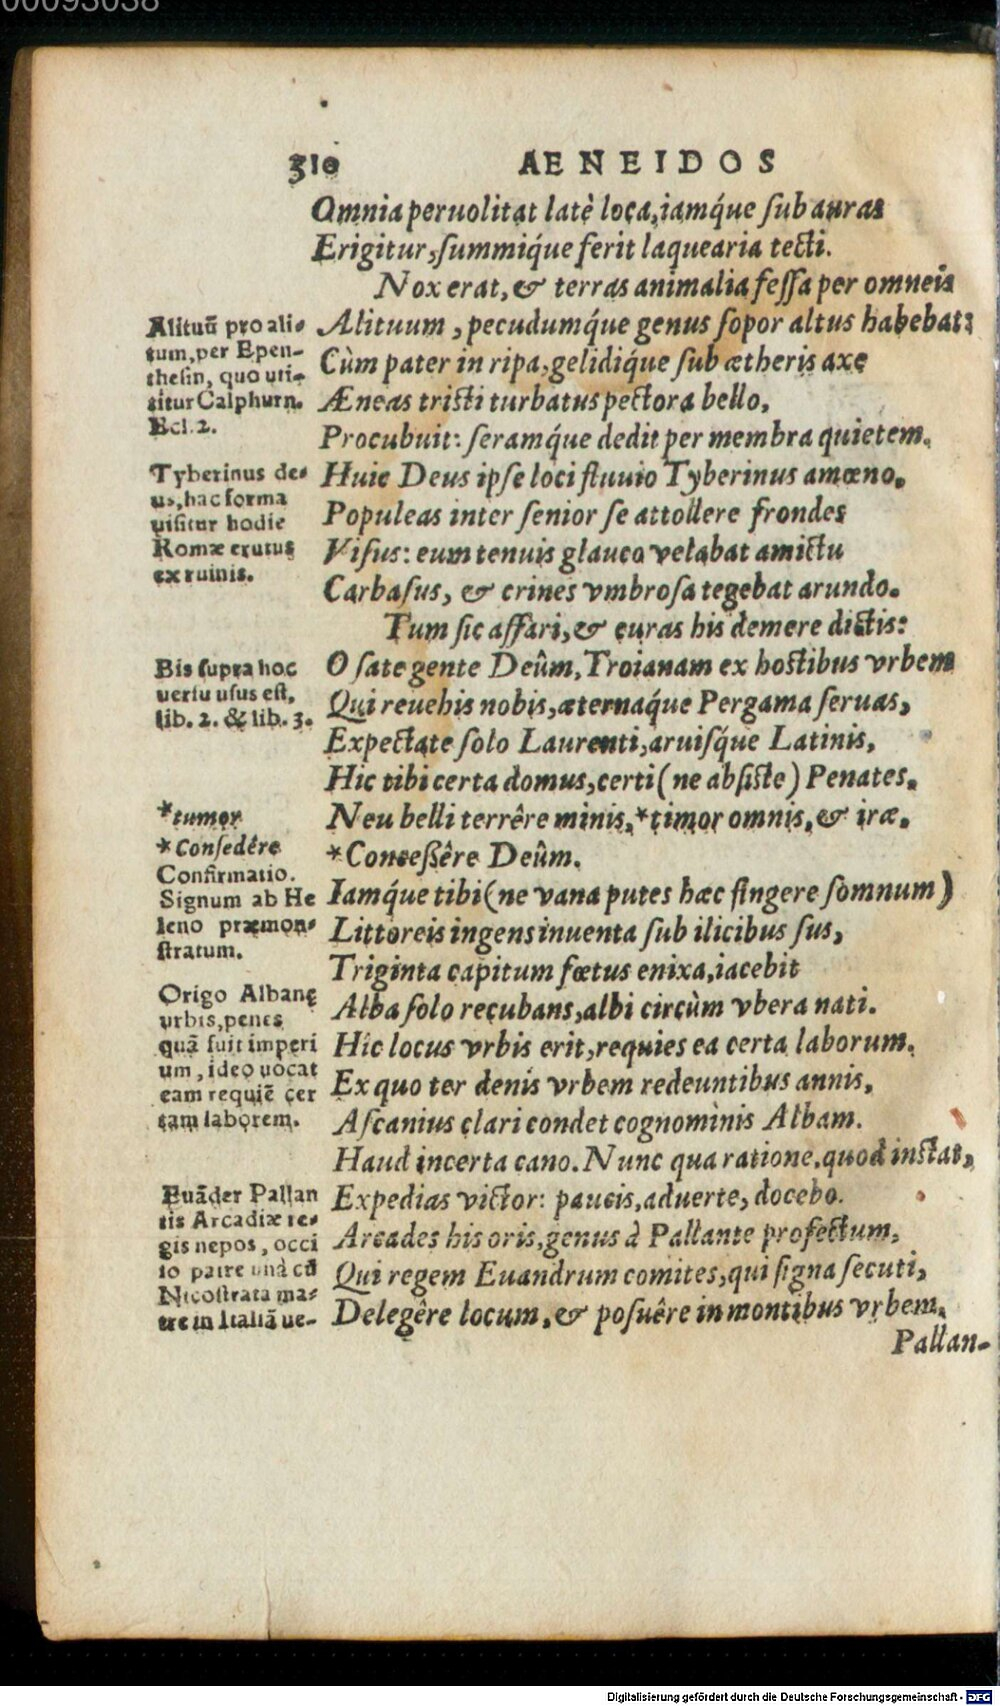 00093038
310 AENEIDOS
Omnia peruolitat latè loca, iamq́ue ſub auras
Erigitur, ſummiq́ue ferit laquearia tecti.
Nox erat, & terras animalia feſſa per omneis
Alituum, pecudumq́ue genus ſopor altus habebat:
Cùm pater in ripa, gelidiq́ue ſub ætheris axe
Æneas triſti turbatus pectora bello,
Procubuit: ſeramq́ue dedit per membra quietem.
Huic Deus ipſe loci fluuio Tyberinus amœno.
Populeas inter ſenior ſe attollere frondes
Viſus: eum tenuis glauco velabat amictu
Carbaſus, & crines vmbroſa tegebat arundo.
Tum ſic affari, & curas his demere dictis:
O ſate gente Deûm, Troianam ex hoſtibus vrbem
Qui reuehis nobis, æternaq́ue Pergama ſeruas,
Expectate ſolo Laurenti, aruiſq́ue Latinis,
Hic tibi certa domus, certi (ne abſiſte) Penates.
Neu belli terrêre minis, *timor omnis, & iræ.
*Conceßêre Deûm.
Iamq́ue tibi (ne vana putes hæc fingere ſomnum)
Littoreis ingens inuenta ſub ilicibus ſus,
Triginta capitum fœtus enixa, iacebit
Alba ſolo recubans, albi circùm vbera nati.
Hic locus vrbis erit, requies ea certa laborum.
Ex quo ter denis vrbem redeuntibus annis,
Aſcanius clari condet cognominis Albam.
Haud incerta cano. Nunc qua ratione, quod inſtat,
Expedias victor: paucis, aduerte, docebo.
Arcades his oris, genus à Pallante profectum,
Qui regem Euandrum comites, qui ſigna ſecuti,
Delegêre locum, & poſuêre in montibus vrbem.
Pallan-
Alituũ pro ali-
tum, per Epen-
theſin, quo uti-
titur Calphurn.
Ecl. 2.
Tyberinus de-
us, hac forma
uiſitur hodie
Romæ erutus
ex ruinis.
Bis ſupra hoc
uerſu uſus eſt,
lib. 2. & lib. 3.
*tumor
*Conſedêre
Confirmatio.
Signum ab He
leno præmon-
ſtratum.
Origo Albanę
urbis, penes
quã fuit imperi
um, ideo uocat
eam requiẽ cer
tam laborem.
Euãder Pallan
tis Arcadiæ re-
gis nepos, occi
ſo patre unà cũ
Nicoſtrata ma-
tre in Italiã ue-
Digitalisierung gefördert durch die Deutsche Forschungsgemeinschaft - DFG